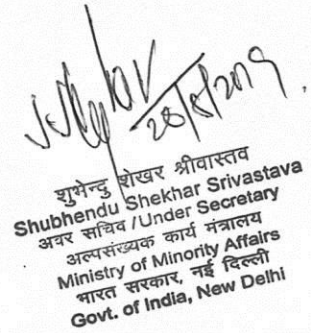 28/8/2019.
शुभेन्दु शेखर श्रीवास्तव
Shubhendu Shekhar Srivastava
अवर सचिव /Under Secretary
अल्पसंख्यक कार्य मंत्रालय
Ministry of Minority Affairs
भारत सरकार, नई दिल्ली
Govt. of India, New Delhi